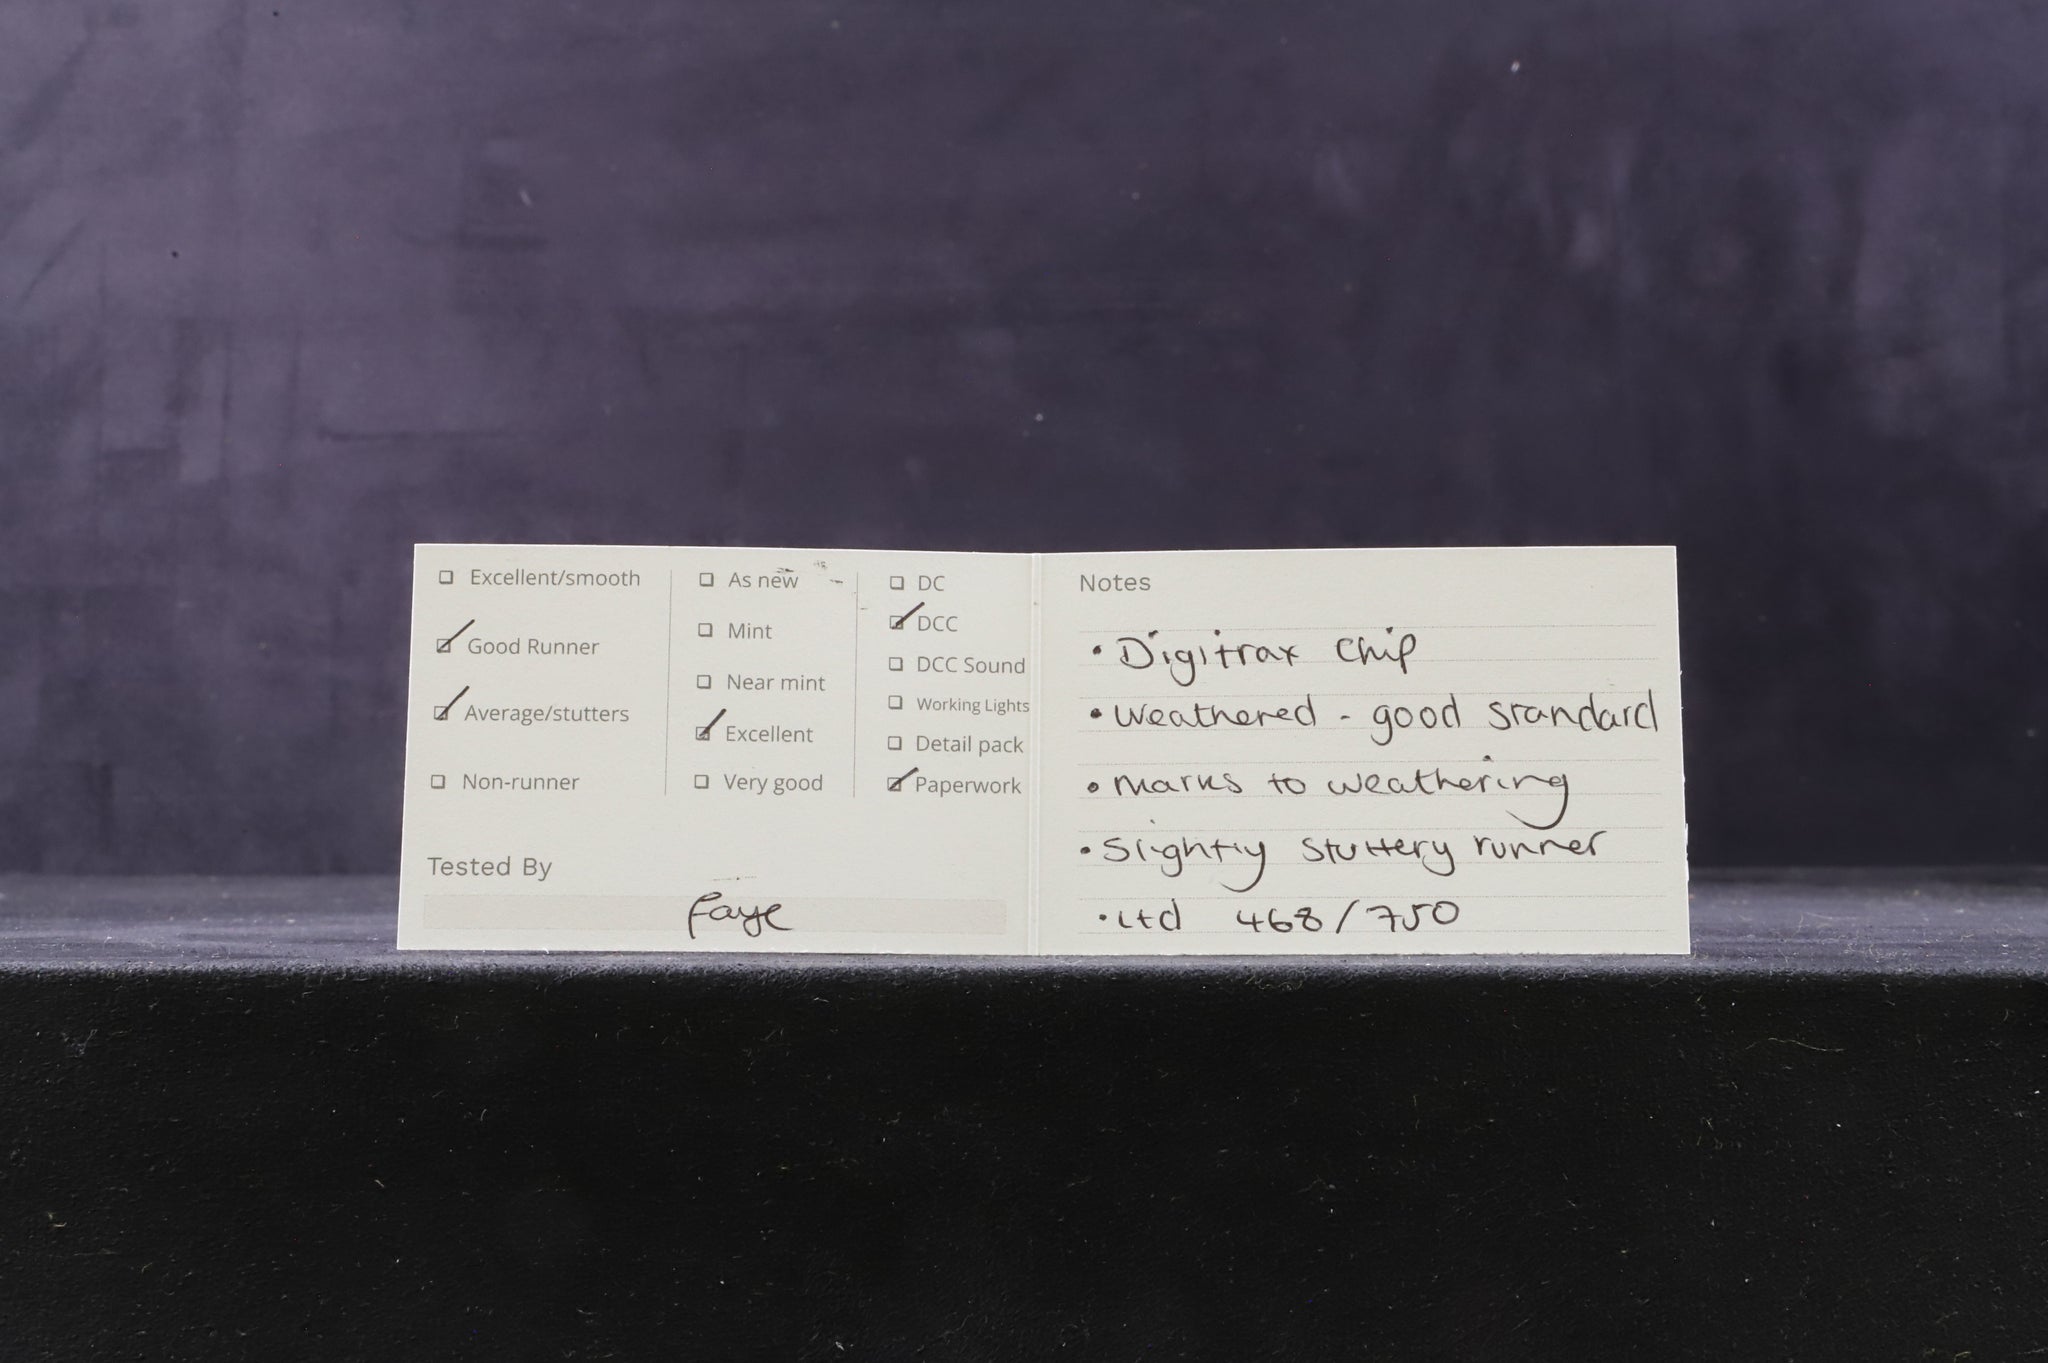 Excellent/smooth
Good Runner
Average/stutters
Non-runner
As new
Mint
Near mint
Excellent
Very good
DC
DCC
DCC Sound
Working Lights
Detail pack
Paperwork
Tested By
Faye
Notes
• Digitrax Chip
• Weathered - good standard
• Marks to weathering
• Slightly stuttery runner
• Ltd 468/750